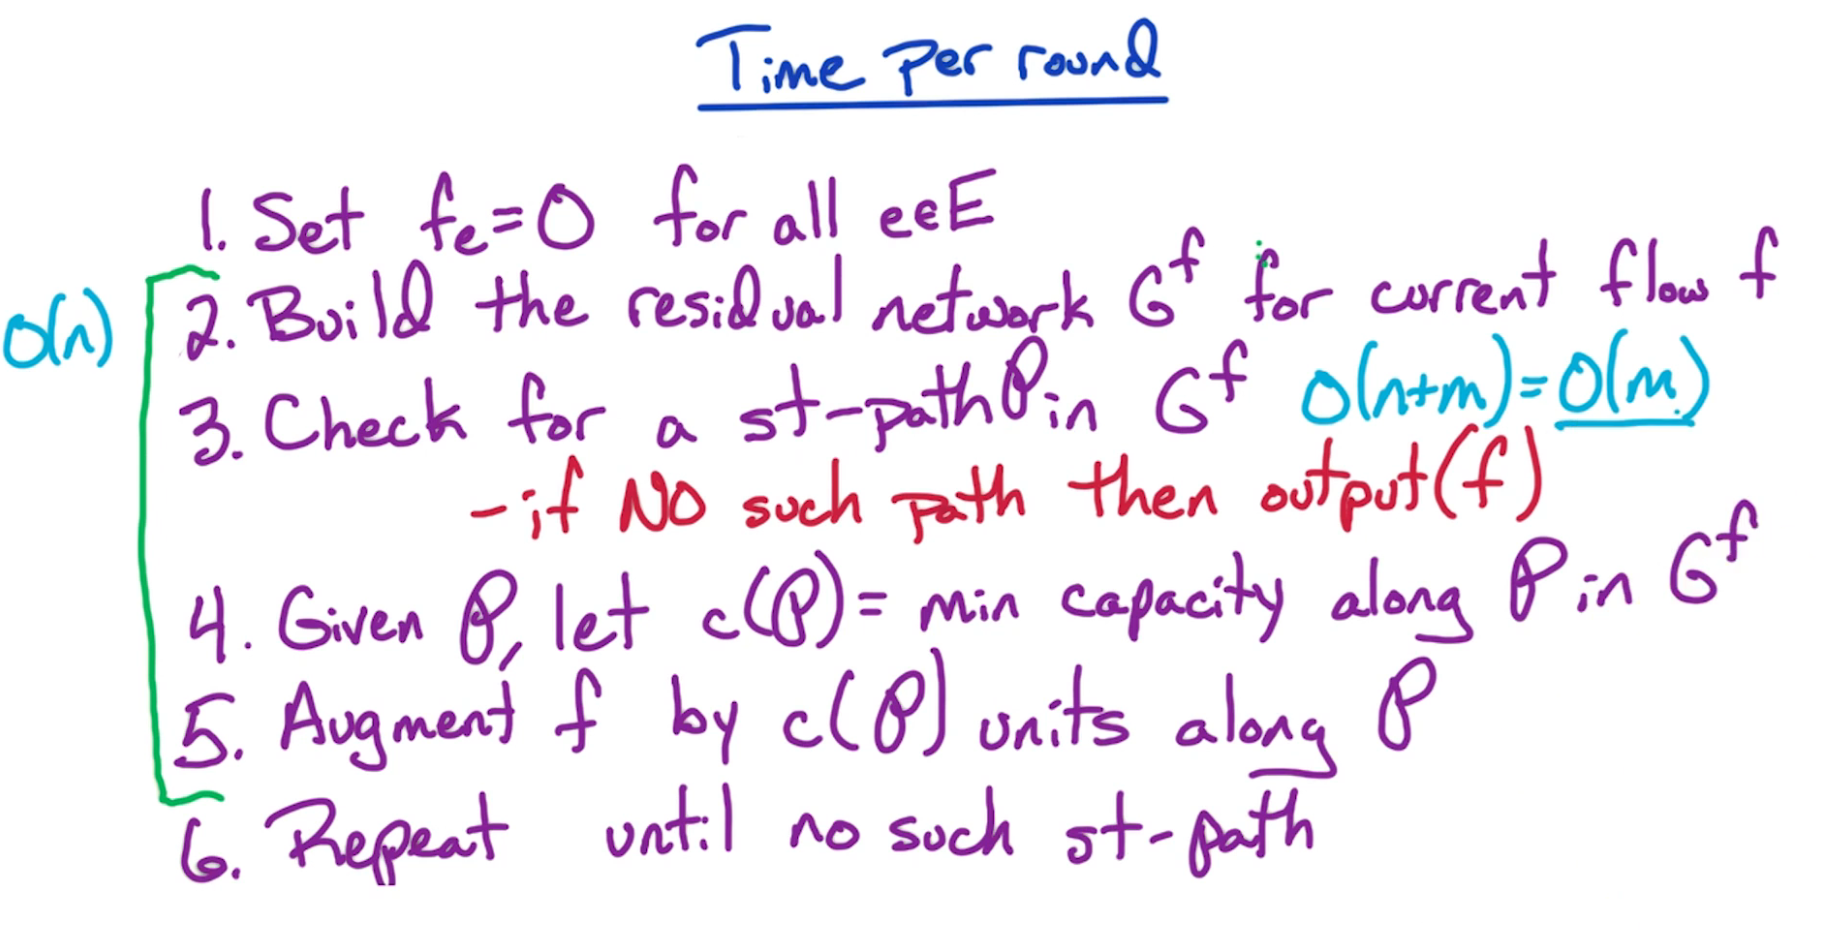 Time Per round
1. Set fₑ=0 for all e∈E
2. Build the residual network Gᶠ for current flow f
O(n)
3. Check for a st-path P in Gᶠ O(n+m)=O(m)
-if NO such path then output(f)
4. Given P, let c(P)= min capacity along P in Gᶠ
5. Augment f by c(P) units along P
6. Repeat until no such st-path